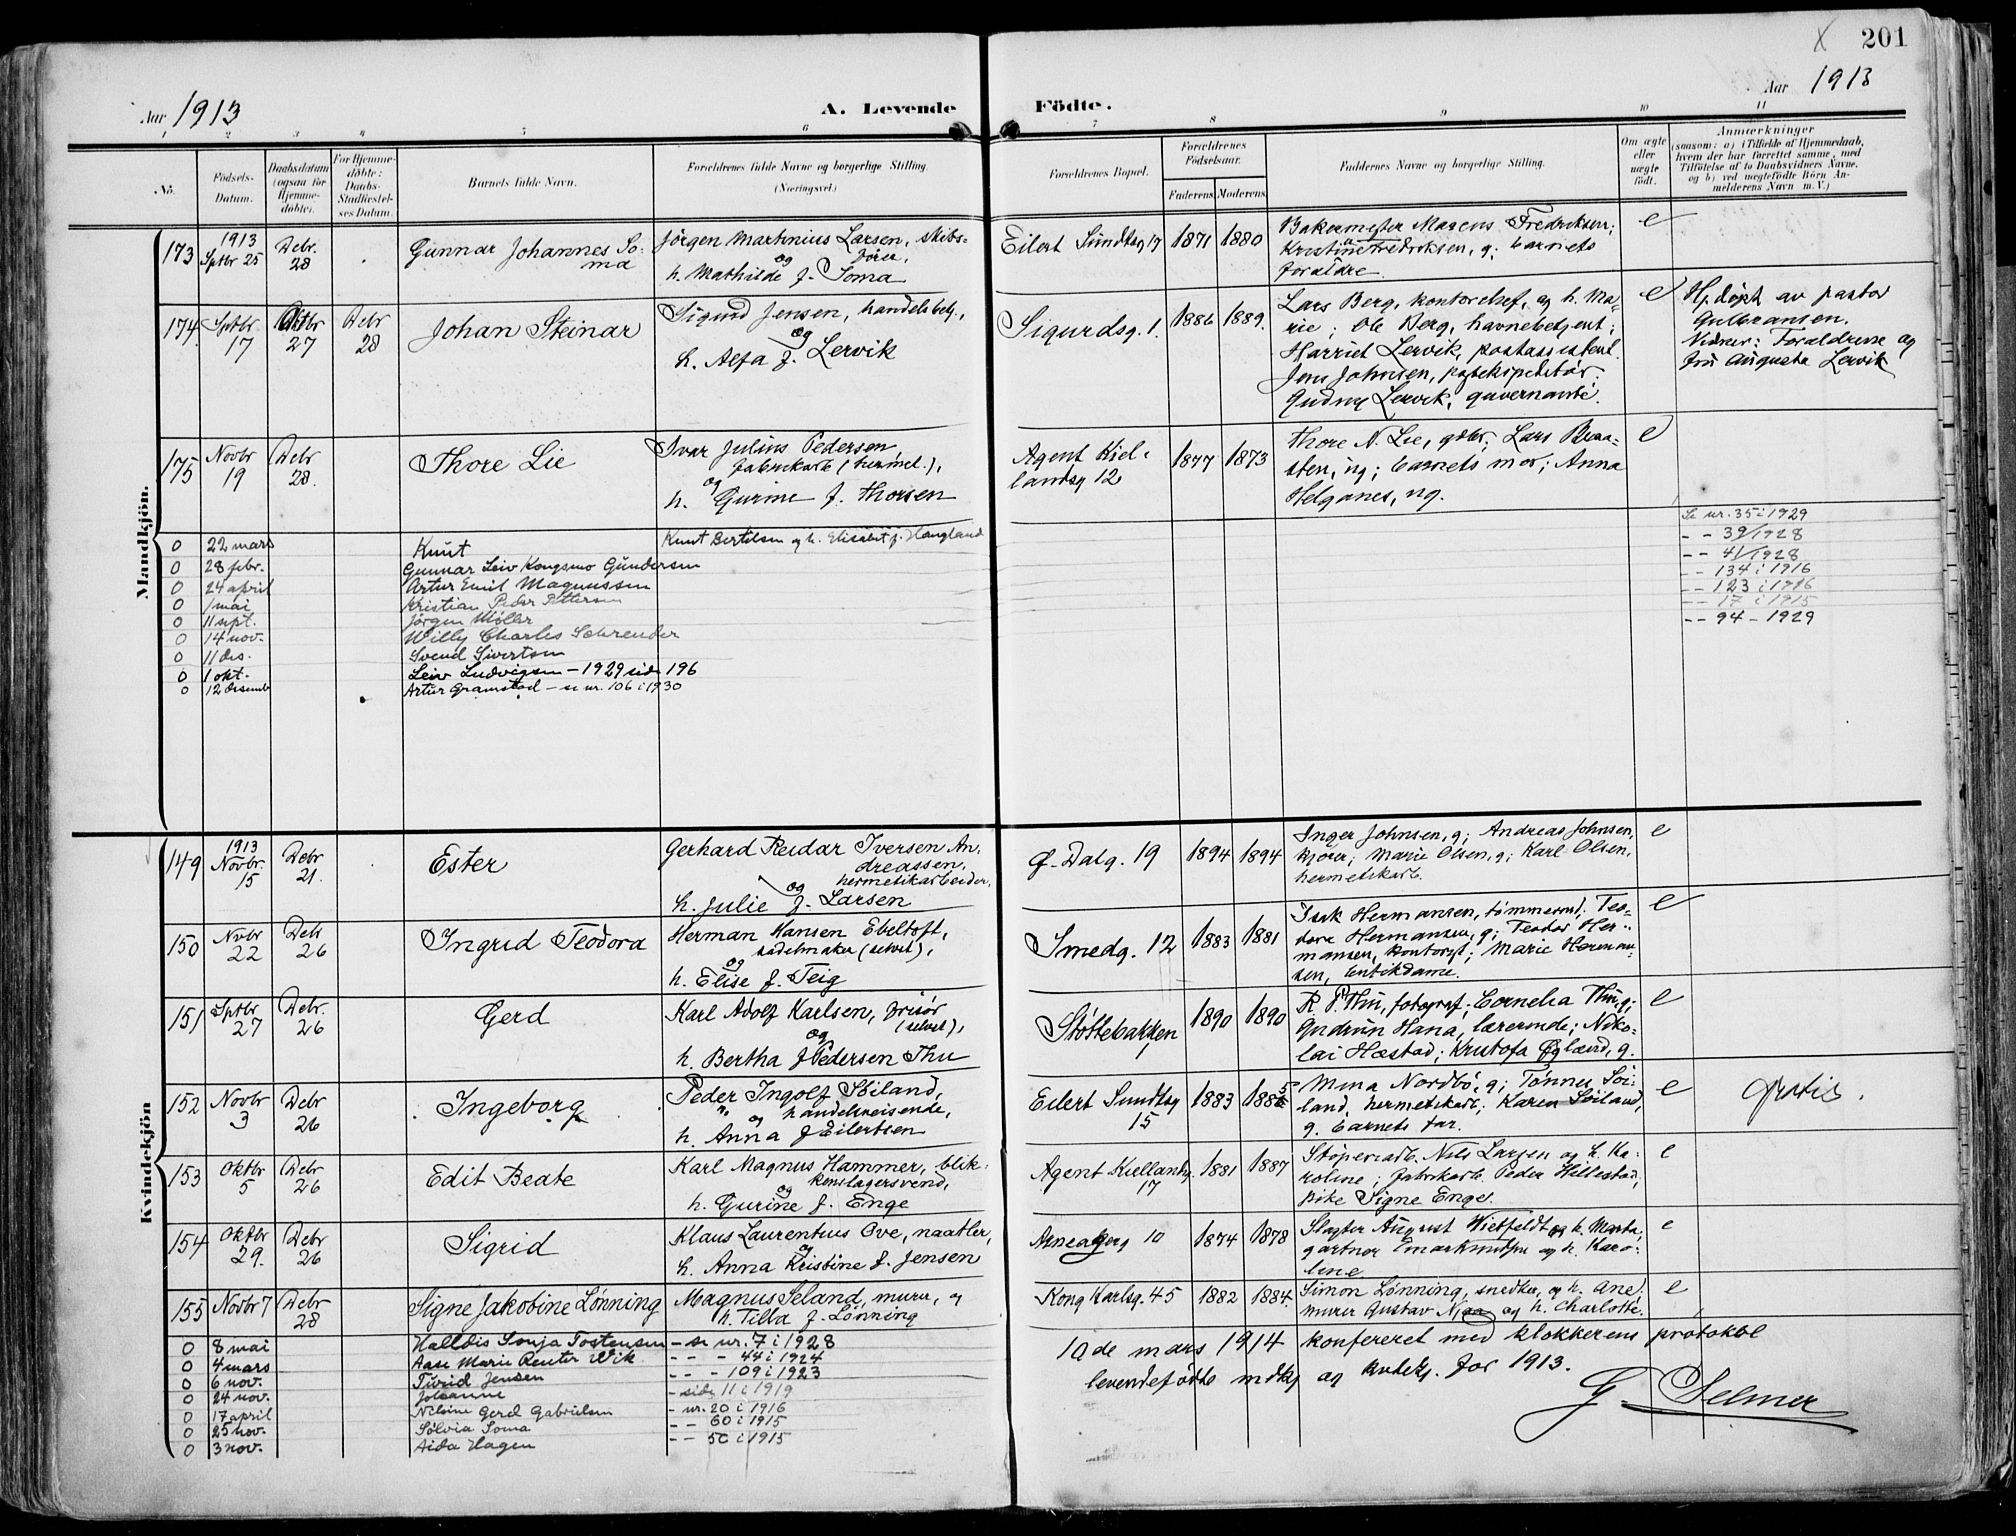 201
Aar 1913
A. Levende
Födte.
Aar 1913
1 2 3 4 5 6 7 8 9 10 11
No.
Födsels-
Datum.
Daabsdatum
(ogsaa for
Hjemme-
döbte).
For Hjemme-
döbte:
Daabs-
Stadfæstel-
ses Datum.
Barnets fulde Navn.
Forældrenes fulde Navne og borgerlige Stilling.
(Næringsvei.)
Forældrenes Bopæl.
Forældrenes
Födselsaar.
Faderens
Moderens
Faddernes Navne og borgerlige Stilling.
Om ægte
eller
uægte
födt.
Anmærkninger
(saasom: a) i Tilfælde af Hjemmedaab,
hvem der har forrettet samme, med
Tilföielse af to Daabsvidners Navne.
og b) ved uægtefödte Börn An-
melderens Navn m. V.)
Mandkjön.
173
1913
Sptbr 25
Debr.
28
Gunnar Johannes So-
ma
Jörgen Martinius Larsen, skibs-
fører,
og
h. Mathilde f. Soma
Eilert Sundtsg 17
1871
1880
Bakermester Magens Fredriksen;
Kristine Fredriksen, g; barnets
forældre
e
174
Sptbr
17
Oktbr
27
Debr
28
Johan Steinar
Sigurd Jensen, handelsbetj.,
og
h. Alfa f. Lervik
Sigurdsg. 1.
1886
1889.
Lars Berg, kontorchef, og h. Ma-
rie; Ole Berg, havnebetjent;
Harriet Lervik, postassistent.
Jens Johnsen,
Gudny Lervik, guvernante.
e
Hj.døpt av pastor
Gulbransen.
Vidner: Forældrene og
fru Augusta Lervik
175
Novbr
19
Debr
28.
Thore Lie
Ivar Julius Pedersen
fabrikarb (hermet.),
og
h. Gurine f. Thorsen
Agent Kiel-
landsg 12
1877
1873
Thore N. Lie, gdbr; Lars Braa-
sten, ug; barnets mor; Anna
Helganes, ug.
e
0 22 mars Knut Knut Bertelsen og h. Elisabet f. Haugland Se nr. 35 i 1929
0 28 febr. Gunnar Leiv Kongsmo Gundersen - - 39/1928
0 24 april Artur Emil Magnussen - - 41/1928
0 1 mai Kristian Peder Pettersen - - 134 i 1916
0 11 sept. Jörgen Møller - - 123 i 1916
0 14 nov. Willy Charles Schreuder - - 17 i 1915
0 11 des. Svend Sivertsen - - 94 - 1929
0 1 okt. Leiv Ludvigsen - 1929 side 196
0 12 desemb Artur Gramstad - se nr. 106 i 1930
Kvindekjön
149
1913
Novbr.
15
Debr
21.
Ester
Gerhard Reidar Iversen An-
dreassen,
hermetikarbeider,
og
h. Julie f. Larsen
Ø. Dalg. 19
1894
1894
Inger Johnsen, g; Andreas Johnsen,
kjører; Marie Olsen, g; Karl Olsen,
hermetikarb.
e
150
Novbr
22
Debr
26
Ingrid Teodora
Herman Hansen Ebeltoft,
sadelmaker (selvst),
og
h. Elise f. Teig
Smedg. 12
1883
1881
Isak Hermansen, tømmermd; Teo-
dora Hermansen, g; Teodor Her-
mansen, kontorist; Marie Herman-
sen, butikdame.
e
151
Sptbr.
27
Debr.
26
Gerd
Karl Adolf Karlsen, frisør
(selvst),
og
h. Bertha f Pedersen Thu
Støttebakken
1890
1890
R. P. Thu, fotograf; Cornelia Thu, g;
Gudrun Hana, lærerinde; Niko-
lai Hæstad; Kristofa Øglænd, g.
e
152
Novbr
3
Debr
26
Ingeborg
Peder Ingolf Soiland,
handelsreisende,
og
h. Anna f Eilertsen
Eilert Sundtsg
15
1883
1885
Mina Nordbø, g; Tønnes Soi-
land, hermetikarb; Karen Soiland,
g. barnets far.
e
Gratis.
153
Oktbr
5
Debr
26
Edit Beate
Karl Magnus Hammer, blik-
kenslagersvend,
og
h. Gurine f. Enge
Agent Kiellandsg
17
1881
1887
Støperiarb. Nils Larsen og h. Ka-
roline; fabrikarb. Peder Hillestad,
pike Signe Enge.
e
154
Oktbr
29.
Debr
26
Sigrid
Klaus Laurentius Ove, naatler,
og
h. Anna Kristine f. Jensen
10
1874
1878
Slagter August Wietfeldt og h. Marta,
gartner Knudsen og h. Karo-
line
e
155
Novbr 7
Debr
28
Signe Jakobine Lønning
Magnus Seland, murer, og
h. Tilla f. Lønning
Kong Karlsg. 45
1882
1884.
Simon Lønning, snedker, og h. Ane;
murer Gustav og h. Charlotte.
e
0 8 mai Halldis Sonja Tostensen - se nr. 7 i 1928
0 4 mars Aase Marie Reuter Wik - - - 44 i 1924
0 6 nov. Turid Jensen - - - 109 i 1923
0 24 nov. Johanne - side 11 i 1919
0 17 april Nilsine Gerd Gabrielsen - nr. 20 i 1916
0 25 nov. Sølvia Soma - - 60 i 1915
0 3 nov. Aida Hagen - - 50 i 1915
10de mars 1914 konfereret med klokkerens protokol
levendefødte mdkj og kvdekj. for 1913.
G. Selmer